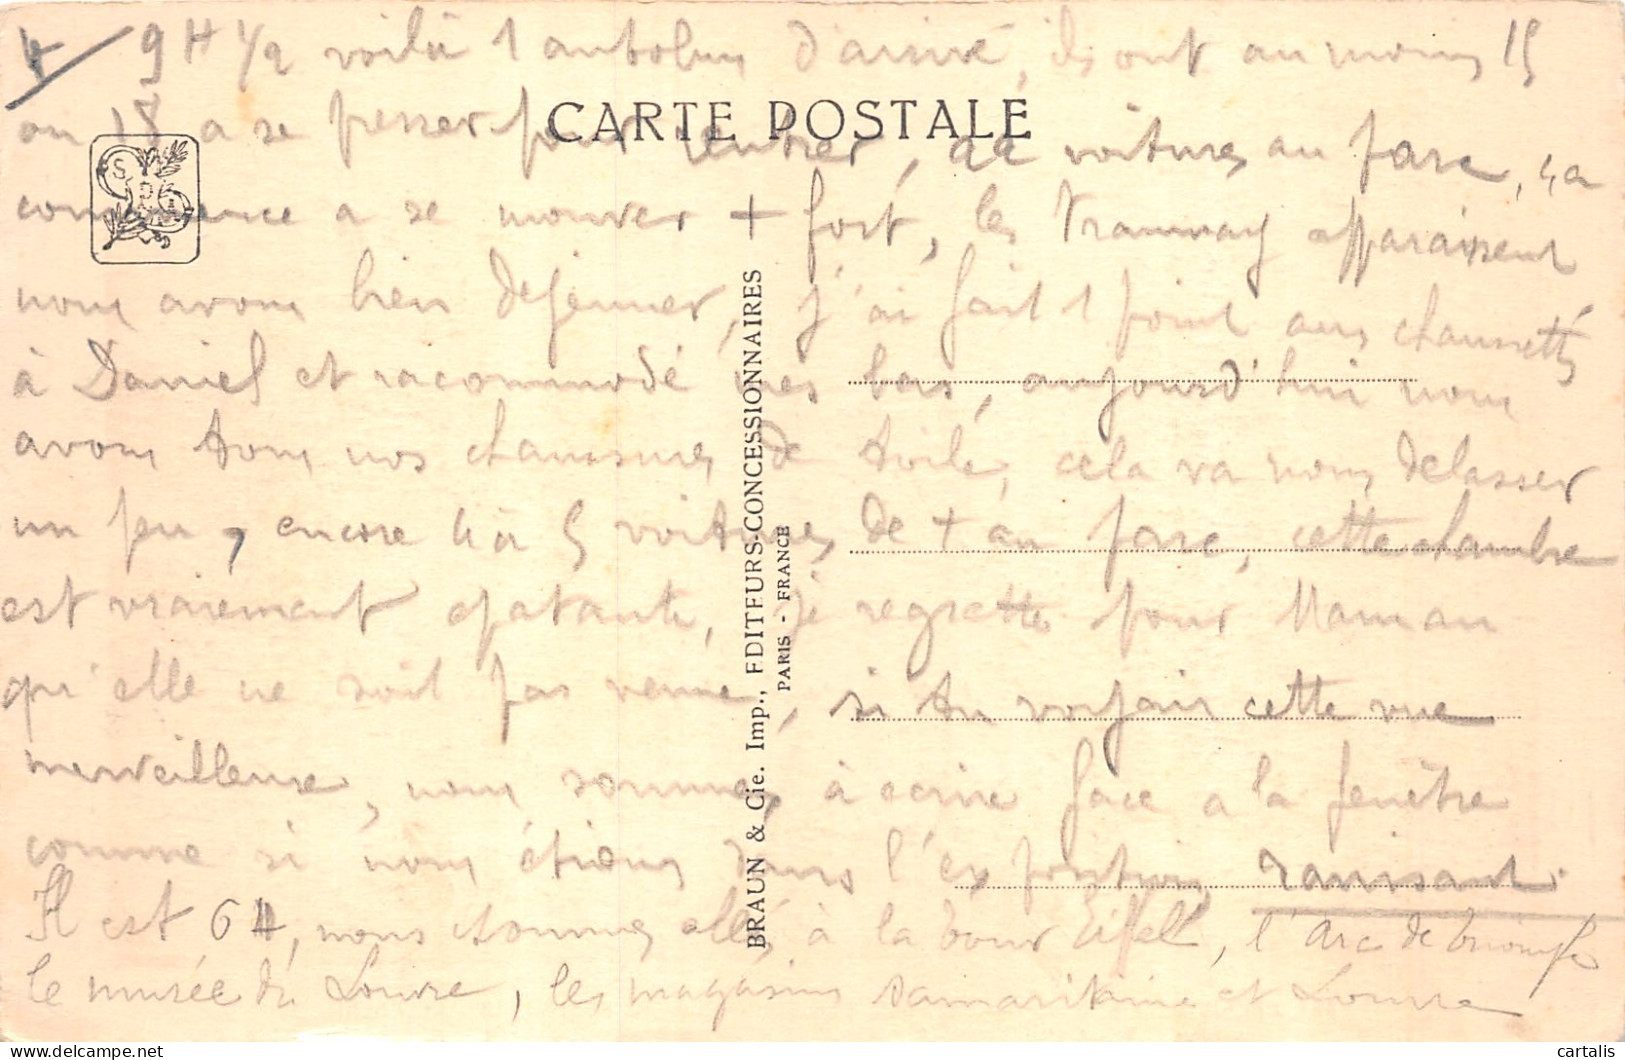 4
9 H 1/2 voilà 1 autobus d'arrivé, ils ont au moins 15
ou 18 a se presser pour rentrer, de voitures au parc, ça
CARTE POSTALE
commence a se mouver + fort, les Tramway apparaissent
nous avons bien dejeuner, j'ai fait 1 point aux chaussettes
à Daniel et racommodé mes bas, aujourd'hui nous
avons tous nos chaussures de toile, cela va nous delasser
un peu, encore 4 à 5 voitures de + au parc, cette chambre
est vraiement epatante, je regrette pour Maman
qu'elle ne soit pas venue, si tu voyais cette vue
merveilleuse, nous sommes à ecrire face a la fenêtre
comme si nous étions dans l'exposition, ravissant.
Il est 6 H, nous sommes allés à la tour Eiffel, l'Arc de triomphe
le musée du Louvre, les magasins Samaritaine et Louvre
BRAUN & Cie. Imp., EDITEURS-CONCESSIONNAIRES
PARIS - FRANCE
cartalis